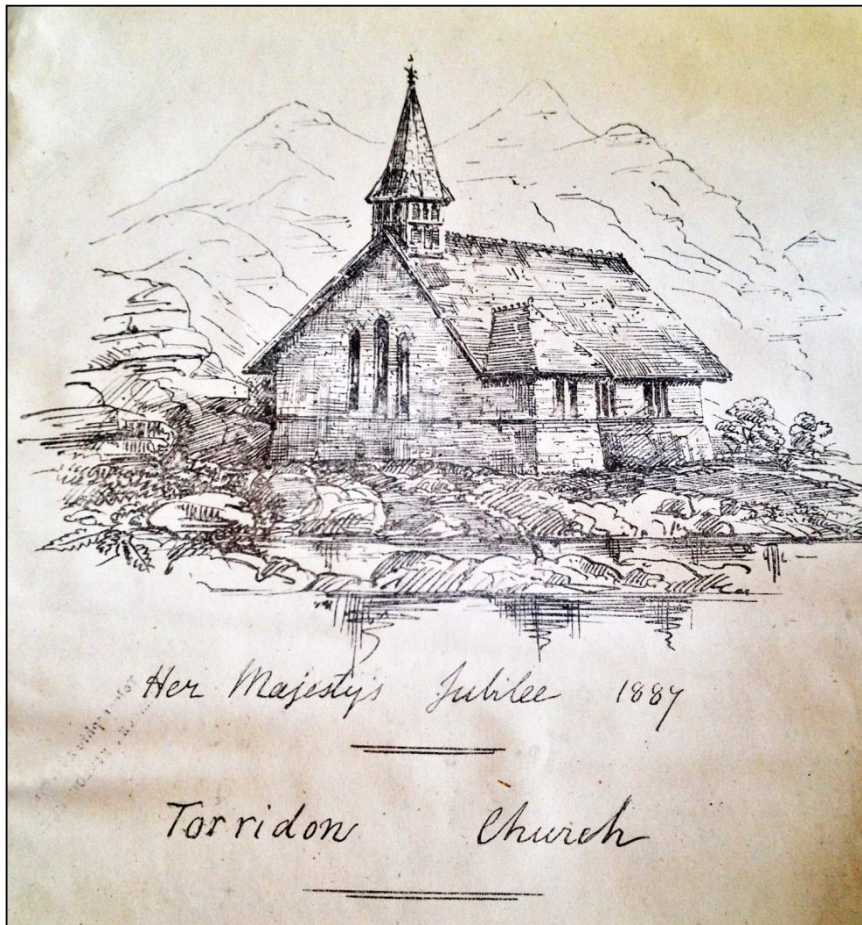 Her Majesty's Jubilee 1887
Torridon Church